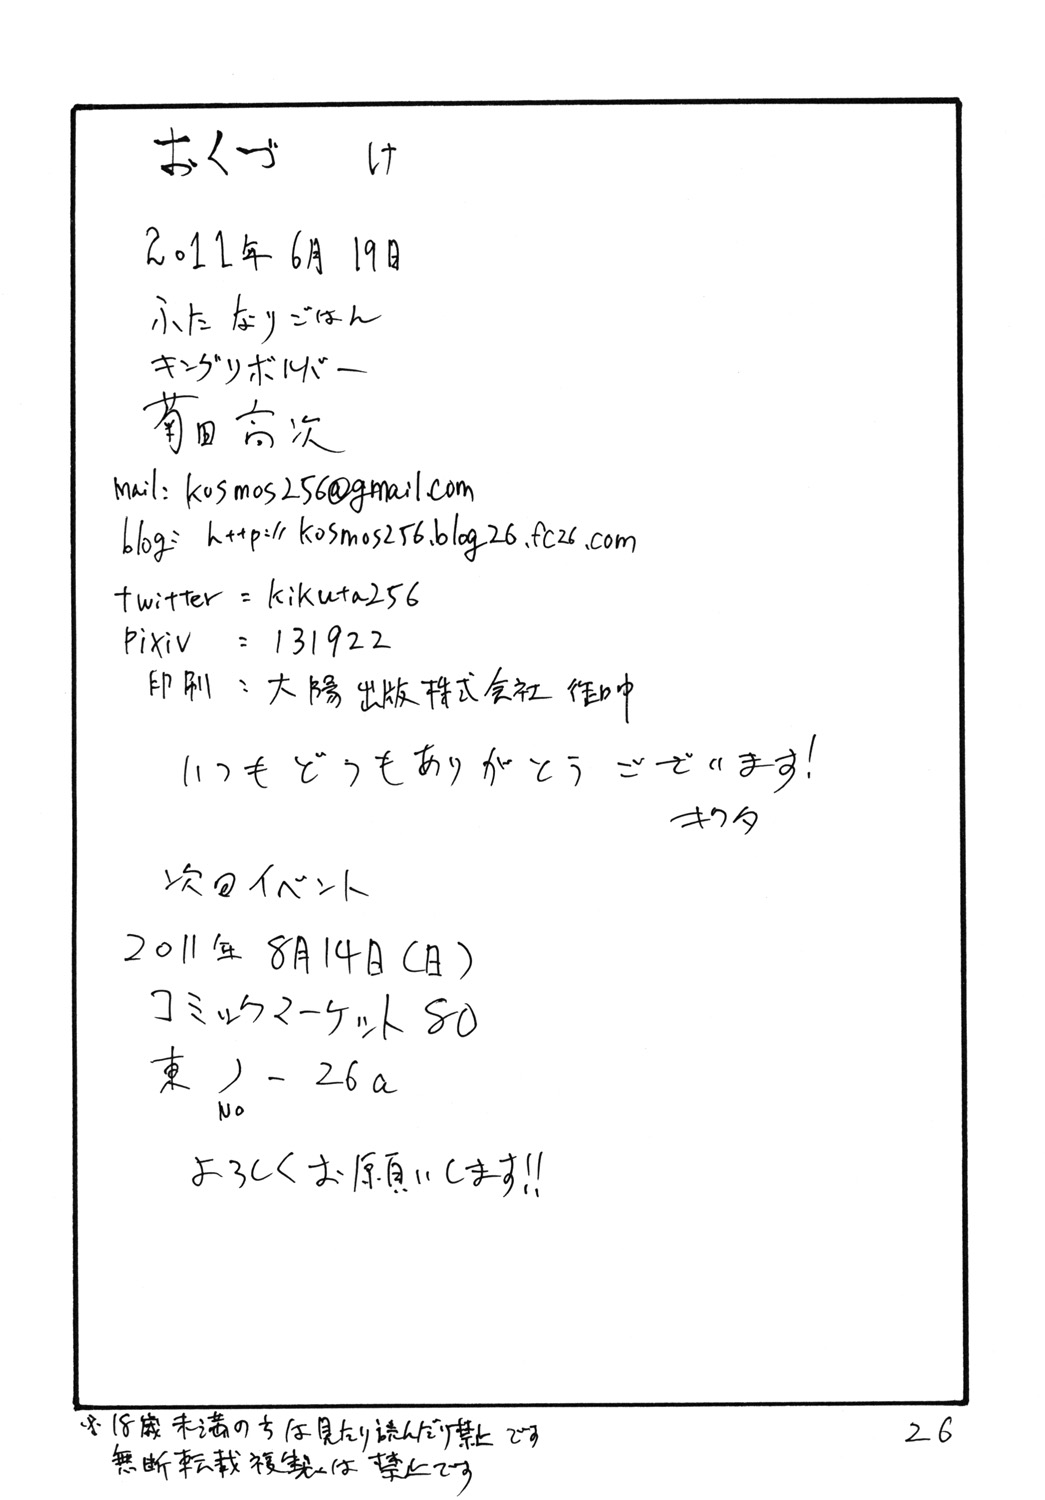 おくづけ
2011年 6月 19日
ふたなりごはん
キングリボルバー
菊田高次
mail: kosmos256@gmail.com
blog: http://kosmos256.blog26.fc26.com
twitter = kikuta256
pixiv : 131922
印刷 : 大陽出版株式会社 御中
いつもどうもありがとうございます!
キクタ
次回イベント
2011年 8月14日(日)
コミックマーケット 80
東 ノ - 26a
No
よろしくお願いします!!
※18歳未満の方は見たり読んだり禁止です
無断転載複製は禁止です
26